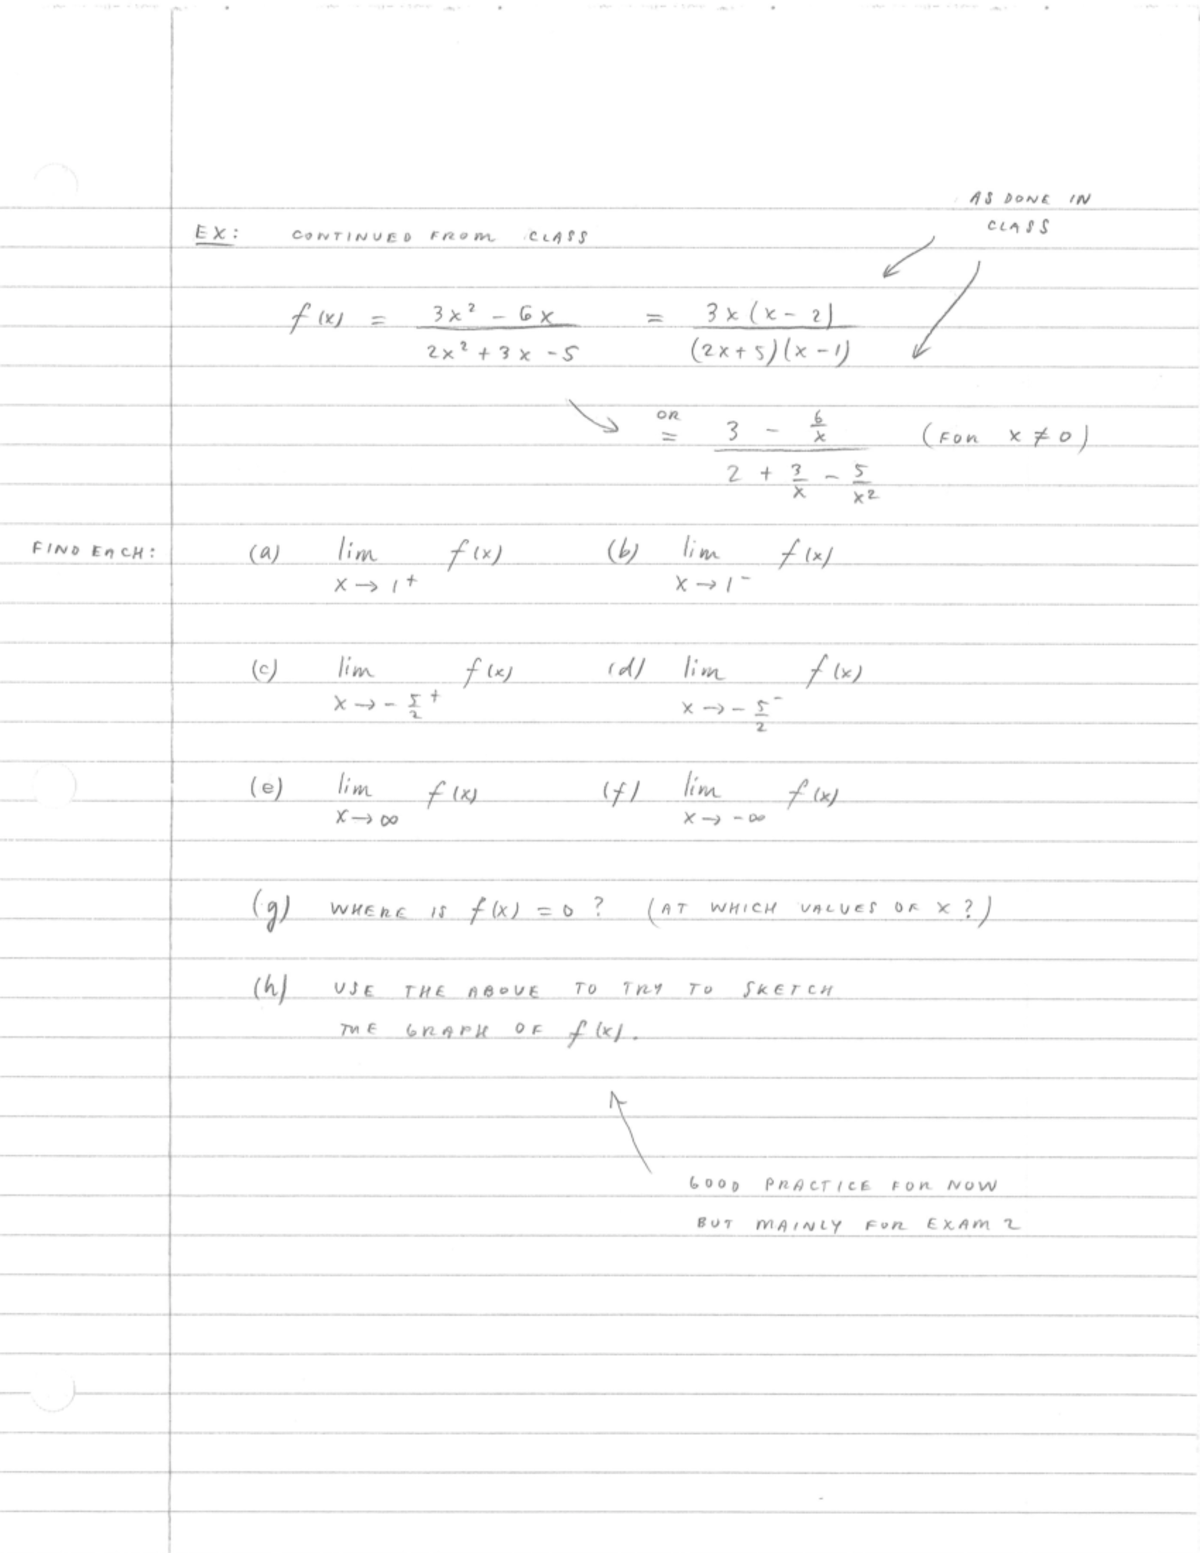 AS DONE IN
CLASS
EX: CONTINUED FROM CLASS
f(x) = (3x² - 6x)/(2x² + 3x - 5) = 3x(x - 2)/((2x + 5)(x - 1))
OR = (3 - 6/x)/(2 + 3/x - 5/x²) (FOR x ≠ 0)
FIND EACH: (a) lim x→1⁺ f(x) (b) lim x→1⁻ f(x)
(c) lim x→-5/2⁺ f(x) (d) lim x→-5/2⁻ f(x)
(e) lim x→∞ f(x) (f) lim x→-∞ f(x)
(g) WHERE IS f(x) = 0? (AT WHICH VALUES OF x?)
(h) USE THE ABOVE TO TRY TO SKETCH
THE GRAPH OF f(x).
GOOD PRACTICE FOR NOW
BUT MAINLY FOR EXAM 2